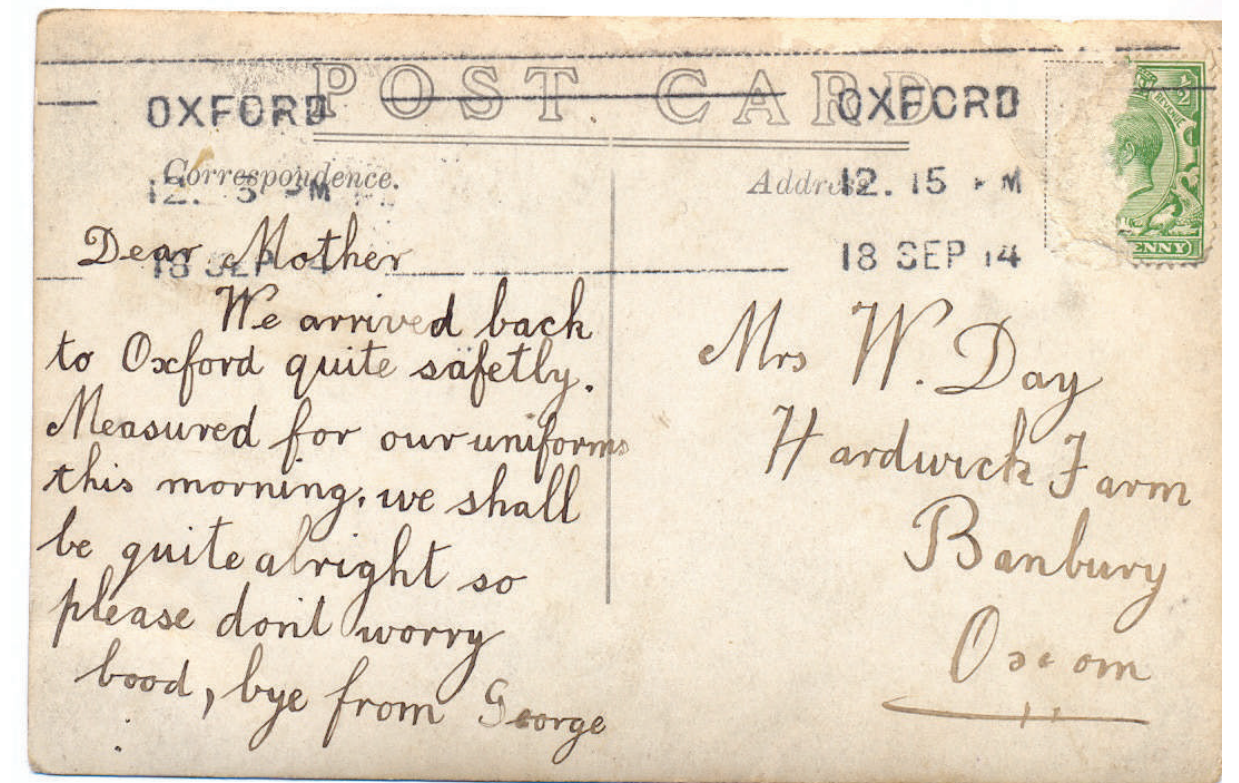 POST CARD
OXFORD
12. 15 PM
18 SEP 14
OXFORD
12. 15 PM
18 SEP 14
Correspondence.
Address
½
ENNY)
Dear Mother
We arrived back
to Oxford quite safetly.
Measured for our uniforms
this morning, we shall
be quite alright so
please don't worry
Good, bye from George
Mrs W. Day
Hardwick Farm
Banbury
Oxom